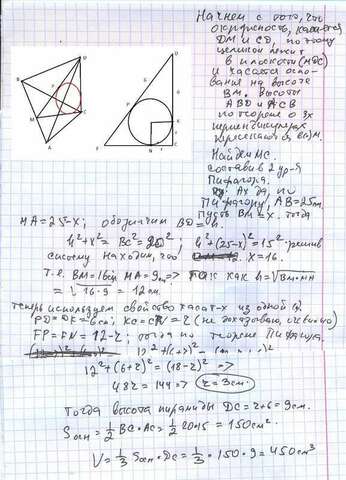 Начнем с того, что
окружность, касается
DM и CD, поэтому
целиком лежит
в плоскости (MDC)
и касается осно-
вания на высоте
Высоты
ABD и ACB
по теореме о 3х
перпендикулярах
Найдем MC.
составив 2 ур-я
Пифагора.
Ах да, по
Пифагору, AB=25см.
Пусть BM=x, тогда
MA=25-x; обозначим
h²+x²=BC²=20²; h²+(25-x)²=15². решив
систему находим, что X=16.
т.е. BM=16см MA=9см => так как h=√BM·MA
=√16·9 = 12см.
теперь используем свойство касат-х из одной т.
PD=DE=6см; KC=CN=r (не доказываю, очевидно)
FP=FN=12-r; тогда по теореме Пифагора.
12²+(6+r)²=(18-r)² =>
48r=144 => r=3см.
Тогда высота пирамиды DC=r+6=9см.
Sосн=½BC·AC=½20·15=150см².
V=⅓Sосн·DC=⅓·150·9=450см³